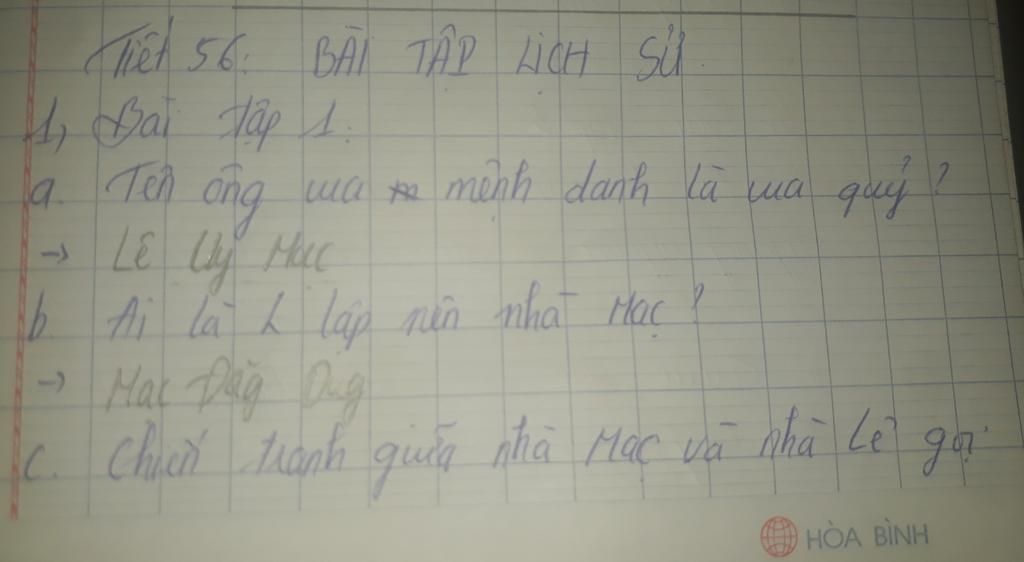 Tiết 56: BÀI TẬP LỊCH SỬ
1, Bài tập 1:
a. Tên ông vua mệnh danh là vua quỷ?
→ Lê Uy Mục
b. Ai là lập nên nhà Mạc?
→ Mạc Đăg Dug
c. Chiến tranh giữa nhà Mạc và nhà Lê gọi
HÒA BÌNH